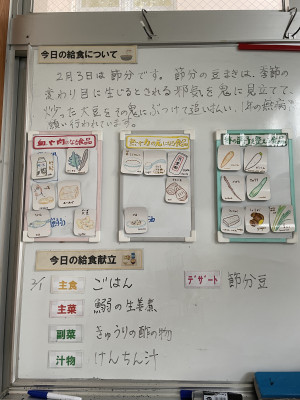 今日の給食について
2月3日は節分です。節分の豆まきは、季節の
変わり目に生じるとされる邪気を鬼に見立てて、
炒った大豆をその鬼にぶつけて追いはらい、1年の無病を
願い行われています。
血や肉になる食品
熱や力になる食品
今日の給食献立
主食 ごはん
デザート 節分豆
主菜 鰯の生姜煮
副菜 きゅうりの酢の物
汁物 けんちん汁